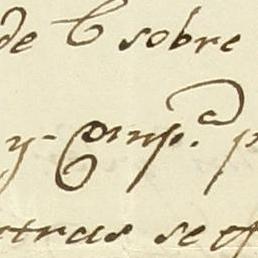 de C sobre
y Comp.ª p
tras se of